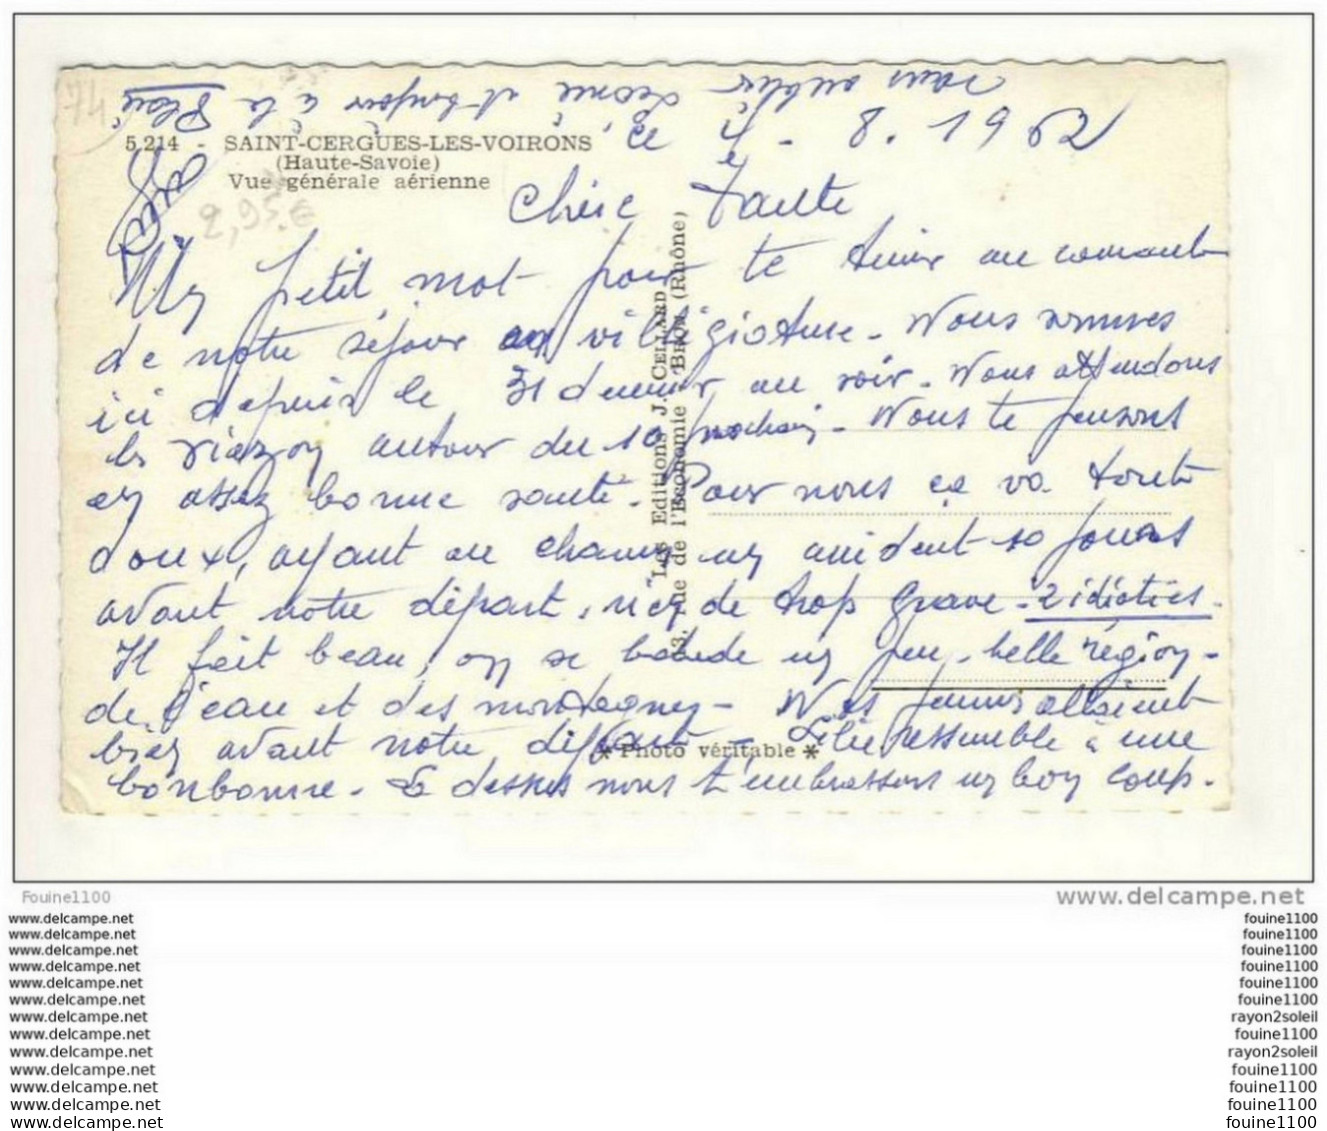 74
sans oublier Léonie et bonjour à la Place
5.214 - SAINT-CERGUES-LES-VOIRONS
(Haute-Savoie)
Vue générale aérienne
2,95 €
ce 4 - 8. 1962
Chère Tante
Un petit mot pour te tenir au courant
de notre séjour en villégiature - Nous sommes
ici depuis le 31 dernier au soir - Nous attendons
les autour du 10 prochain - Nous te pensons
en assez bonne santé - Pour nous ça va tout
doux, ayant eu un accident 10 jours
avant notre départ, rien de trop grave - 2 idioties -
Il fait beau, on se balade un peu - belle région -
de l'eau et des montagnes - allaient
bien avant notre départ - ressemble à une
bonbonne - Là dessus nous t'embrassons un bon coup -
"LES Editions J. CELLARD
rue de l'Economie - BRON (Rhône)
* Photo véritable *
Fouine1100
www.delcampe.net
www.delcampe.net
www.delcampe.net
www.delcampe.net
www.delcampe.net
www.delcampe.net
www.delcampe.net
www.delcampe.net
www.delcampe.net
www.delcampe.net
www.delcampe.net
www.delcampe.net
www.delcampe.net
www.delcampe.net
fouine1100
fouine1100
fouine1100
fouine1100
fouine1100
fouine1100
rayon2soleil
fouine1100
rayon2soleil
fouine1100
fouine1100
fouine1100
fouine1100